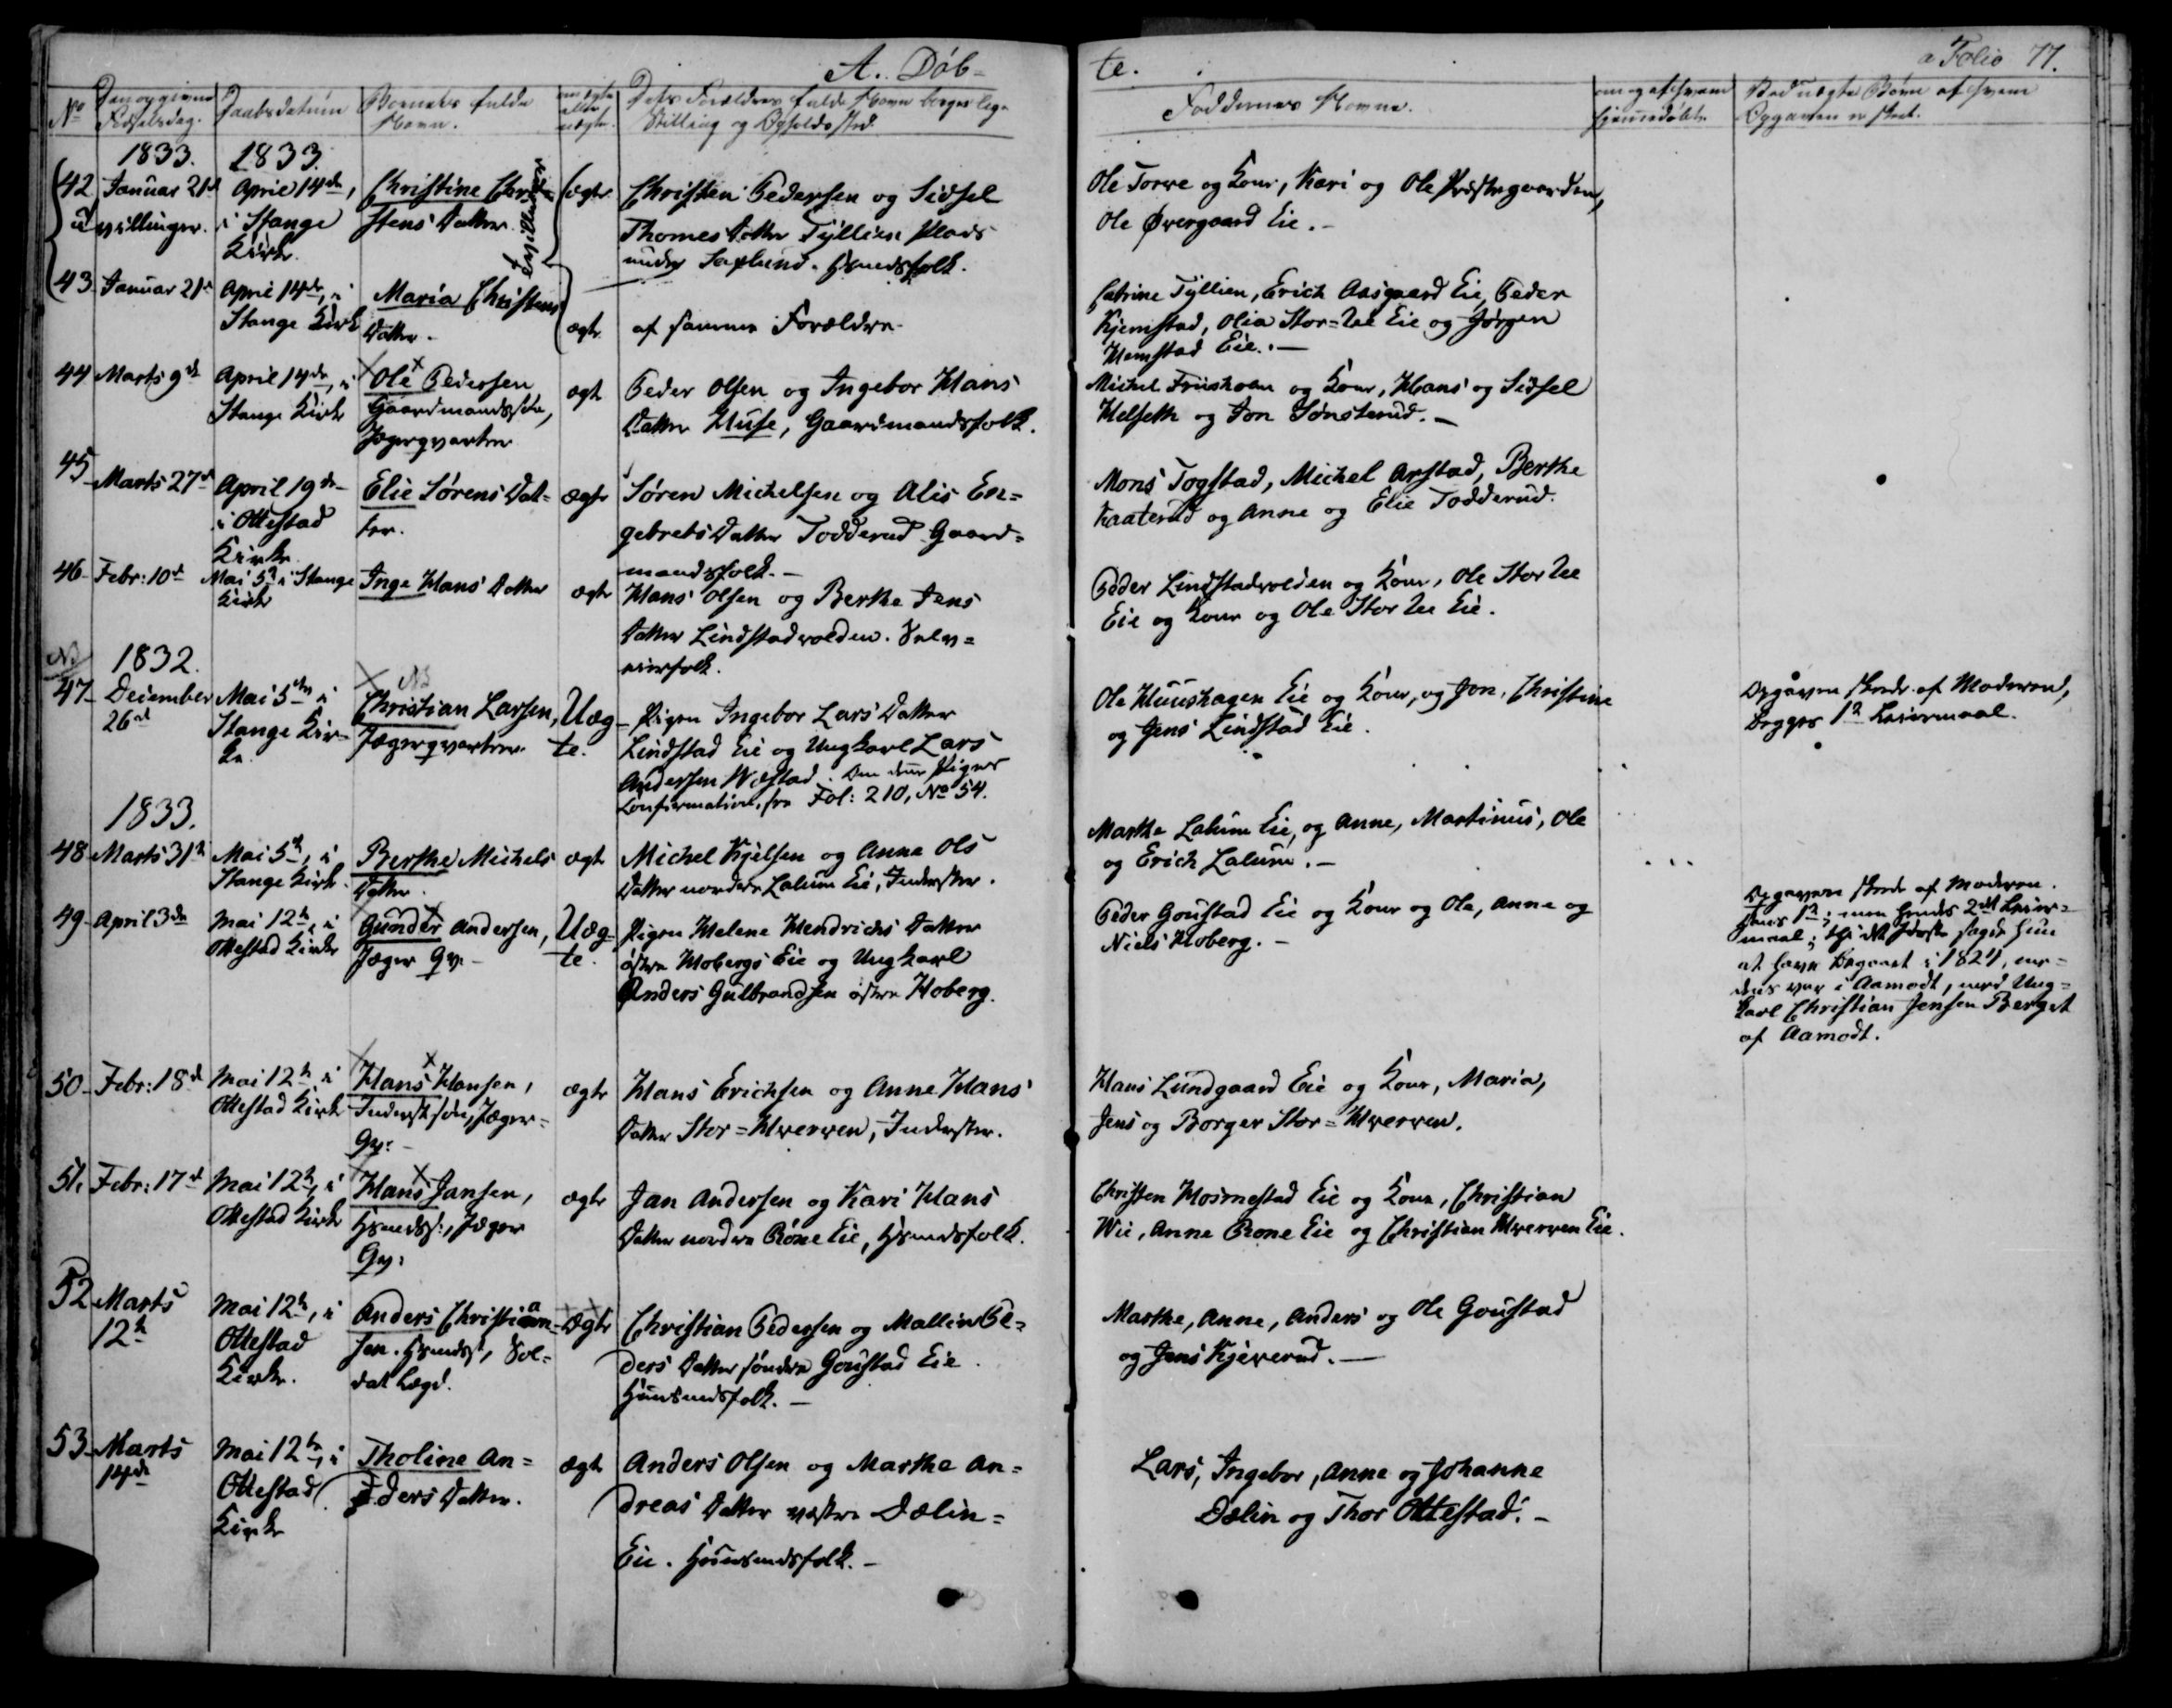 A. Døb-
te.
a Folio 77.
No
Den opgivne
Fødselsdag.
Daabsdatum
Barnets fulde
Navn.
om ægte
eller
uægte.
Dets Forældres fulde Navn borgerlige
Stilling og Opholdssted.
Faddernes Navne.
om og af hvem
hjemmedøbt.
Ved uægte Børn af hvem
Opgaven er skeet.
1833.
1833.
42
Januar 21d
tvillinger.
April 14de,
i Stange
Kirke.
Christine Chri-
stens Datter
tvillinger
ægte
Christen Pedersen og Sidsel
Thomes Datter Tyllien Plads
under Saxlund. Huusmdsfolk.
Ole Torve og Kone, Kari og Ole Præstegaarden,
Ole Øvergaard Eie.-
43
Januar 21d
April 14de, i
Stange Kirke
Maria Christens
Datter.
ægte
af samme Forældre
Catrine Tyllien, Erich Aasgaard Eie, Peder
Kjemstad, Olia Stor-Ree Eie og Jørgen
Hemstad Eie.-
44
Marts 9de
April 14de, i
Stange Kirke
Ole Pedersen
Gaardmandssøn,
Jægerqvarteer
ægte
Peder Olsen og Ingebor Hans
Datter Huse, Gaardmandsfolk.
Michel Friisholm og Kone, Hans og Sidsel
Helseth og Jon Sønsterud.-
45
Marts 27de
April 19de
i Ottestad
Kirke
Elie Sørens Dat-
ter.
ægte
Søren Michelsen og Alis En-
gebrets Datter Todderud Gaard-
mandsfolk.-
Mons Togstad, Michel Arstad, Berthe
Kaaterud og Anne og Elie Todderud.
46
Febr: 10de
Mai 5te i Stange
Kirke
Inge Hans Datter
ægte
Hans Olsen og Berthe Jens
Datter Lindstadvolden. Selv-
eierfolk.
Peder Lindstadvolden og Kone, Ole Stor Ree
Eie og Kone og Ole Stor Ree Eie.
NB
1832.
47
December
26de
Mai 5te i
Stange Kir-
ke.
NB
Christian Larsen,
Jægerqvarteer.
Uæg-
te.
Pigen Ingebor Lars Datter
Lindstad Eie og Ungkarl Lars
Andersen Westad. Om denne Piges
Confirmation, see Fol: 210, No 54.
Ole Huushagen Eie og Kone, og Jon, Christine
og Jens Lindstad Eie.
Opgaven skede af Moderen,
begges 1ste Leiermaal.
1833.
48
Marts 31te
Mai 5te, i
Stange Kirke
Berthe Michels
Datter.
ægte
Michel Kjelsen og Anne Ols
Datter nordre Lalum Eie, Inderster.
Marthe Lalum Eie, og Anne, Martinus, Ole
og Erich Lalum.-
49
April 3de
Mai 12te, i
Ottestad Kirke
Gunder Andersen,
Jæger Qv.-
Uæg-
te.
Pigen Helene Hendrichs Datter
østre Hobergs Eie og Ungkarl
Anders Gulbrandsen østre Hoberg.
Peder Goustad Eie og Kone og Ole, Anne og
Niels Hoberg.-
Opgaven skede af Moderen.
Hans 1ste; men hendes 2det Leier-
maal; thi det første sagde hun
at have begaaet i 1821, me-
dens var i Aamodt, med Ung-
karl Christian Jensen Berget
af Aamodt.
50
Febr: 18de
Mai 12te i
Ottestad Kirke
Hans Hansen,
Inderstsøn, Jæger-
Qv:-
ægte
Hans Erichsen og Anne Hans
Datter Stor-Hverven, Inderster.
Hans Lundgaard Eie og Kone, Maria,
Jens og Borger Stor-Hverven.
51.
Febr: 17de
Mai 12te, i
Ottestad Kirke
Hans Jansen,
Huusmdss:, Jæger
Qv:
ægte
Jan Andersen og Kari Hans
Datter nordre Rone Eie, Huusmdsfolk.
Christen Hosmestad Eie og Kone, Christian
Wii, Anne Rone Eie og Christian Hverven Eie.
52
Marts
12te
Mai 12te, i
Ottestad
Kirke.
Anders Christian-
sen. Huusmdss, Sol-
dat Lægd.
Ægte
Christian Pedersen og Mallin Pe-
ders Datter søndre Goustad Eie.
Huusmdsfolk.-
Marthe, Anne, Anders og Ole Goustad
og Jens Kjeverud.-
53
Marts
14de
Mai 12te, i
Ottestad
Kirke
Tholine An-
ders Datter.
ægte
Anders Olsen og Marthe An-
dreas Datter vestre Dælin-
Eie. Huusmdsfolk.-
Lars, Ingebor, Anne og Johanne
Dælin og Thor Ottestad.-